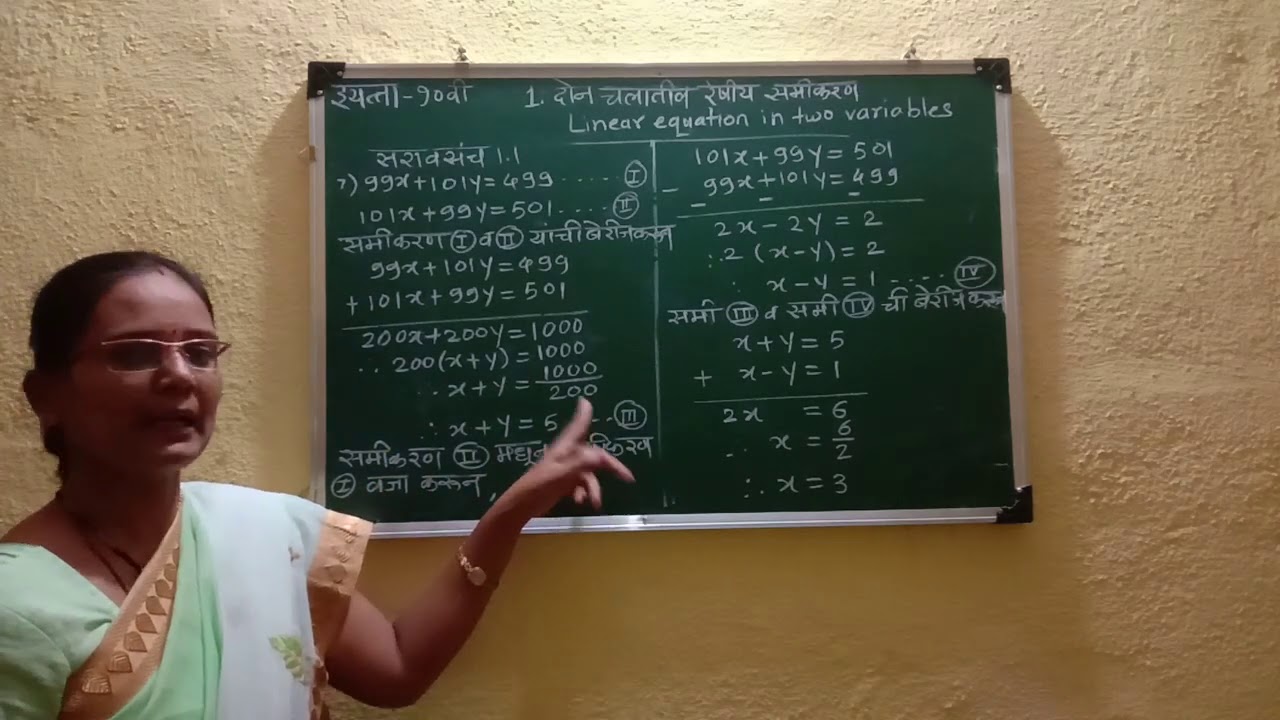 इयत्ता-१०वी
1. दोन चलातील रेषीय समीकरण
Linear equation in two variables
सरावसंच 1.1
7) 99x+101y=499 ..... I
101x+99y=501 .... II
समीकरण I व II यांची बेरीज करून
99x+101y=499
+101x+99y=501
200x+200y=1000
∴ 200(x+y)=1000
∴ x+y=1000/200
∴ x+y=5 ... III
समीकरण II मधून
I वजा करून,
101x+99y=501
- 99x+101y=499
- - -
2x-2y=2
∴ 2(x-y)=2
∴ x-y=1 ..... IV
समी III व समी IV ची बेरीज करून
x+y=5
+ x-y=1
2x =6
∴ x=6/2
∴ x=3